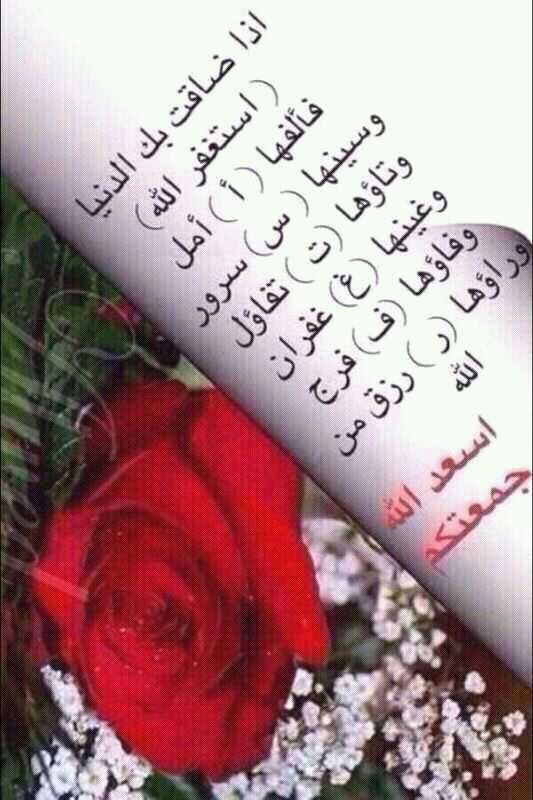 اذا ضاقت بك الدنيا
( استغفر الله)
فألفها ( أ) أمل
وسينها ( س) سرور
وتاؤها (ت ) تفاؤل
وغينها (غ) غفران
وفاؤها (ف) فرج
وراؤها (ر) رزق من
الله
اسعد الله
جمعتكم